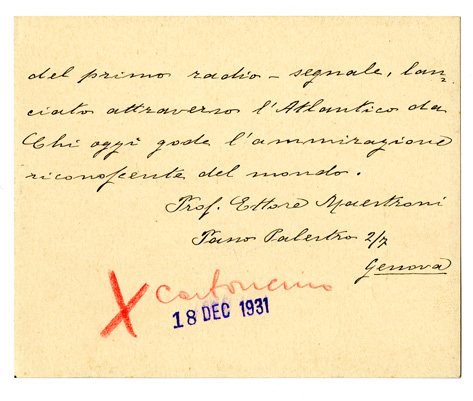 del primo radio - segnale, lan=
ciato attraverso l'Atlantico da
Chi oggi gode l'ammirazione
riconoscente del mondo.
Prof. Ettore Maestroni
Palestro 2/7
Genova
X Cartoncino
18 DEC 1931